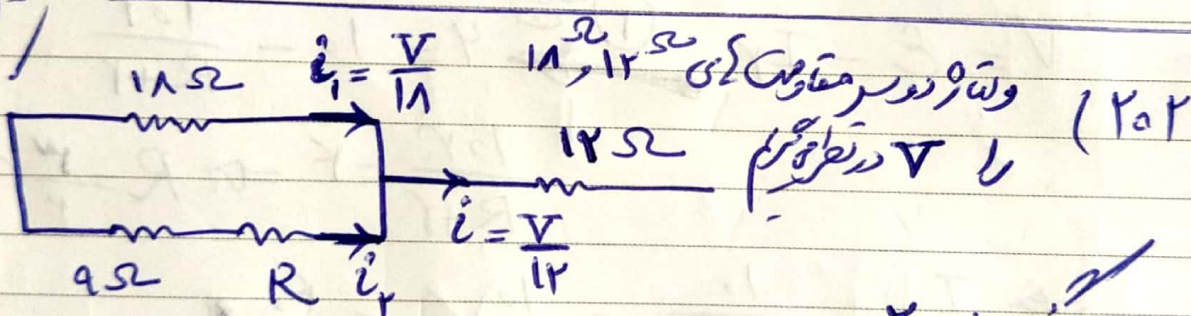 ۲۰۲) ولتاژ دو سر مقاومت های ۱۲Ω و ۱۸Ω
را V در نظر می‌گیریم
۱۸Ω i₁ = V/۱۸
۱۲Ω
i = V/۱۲
۹Ω R i₂